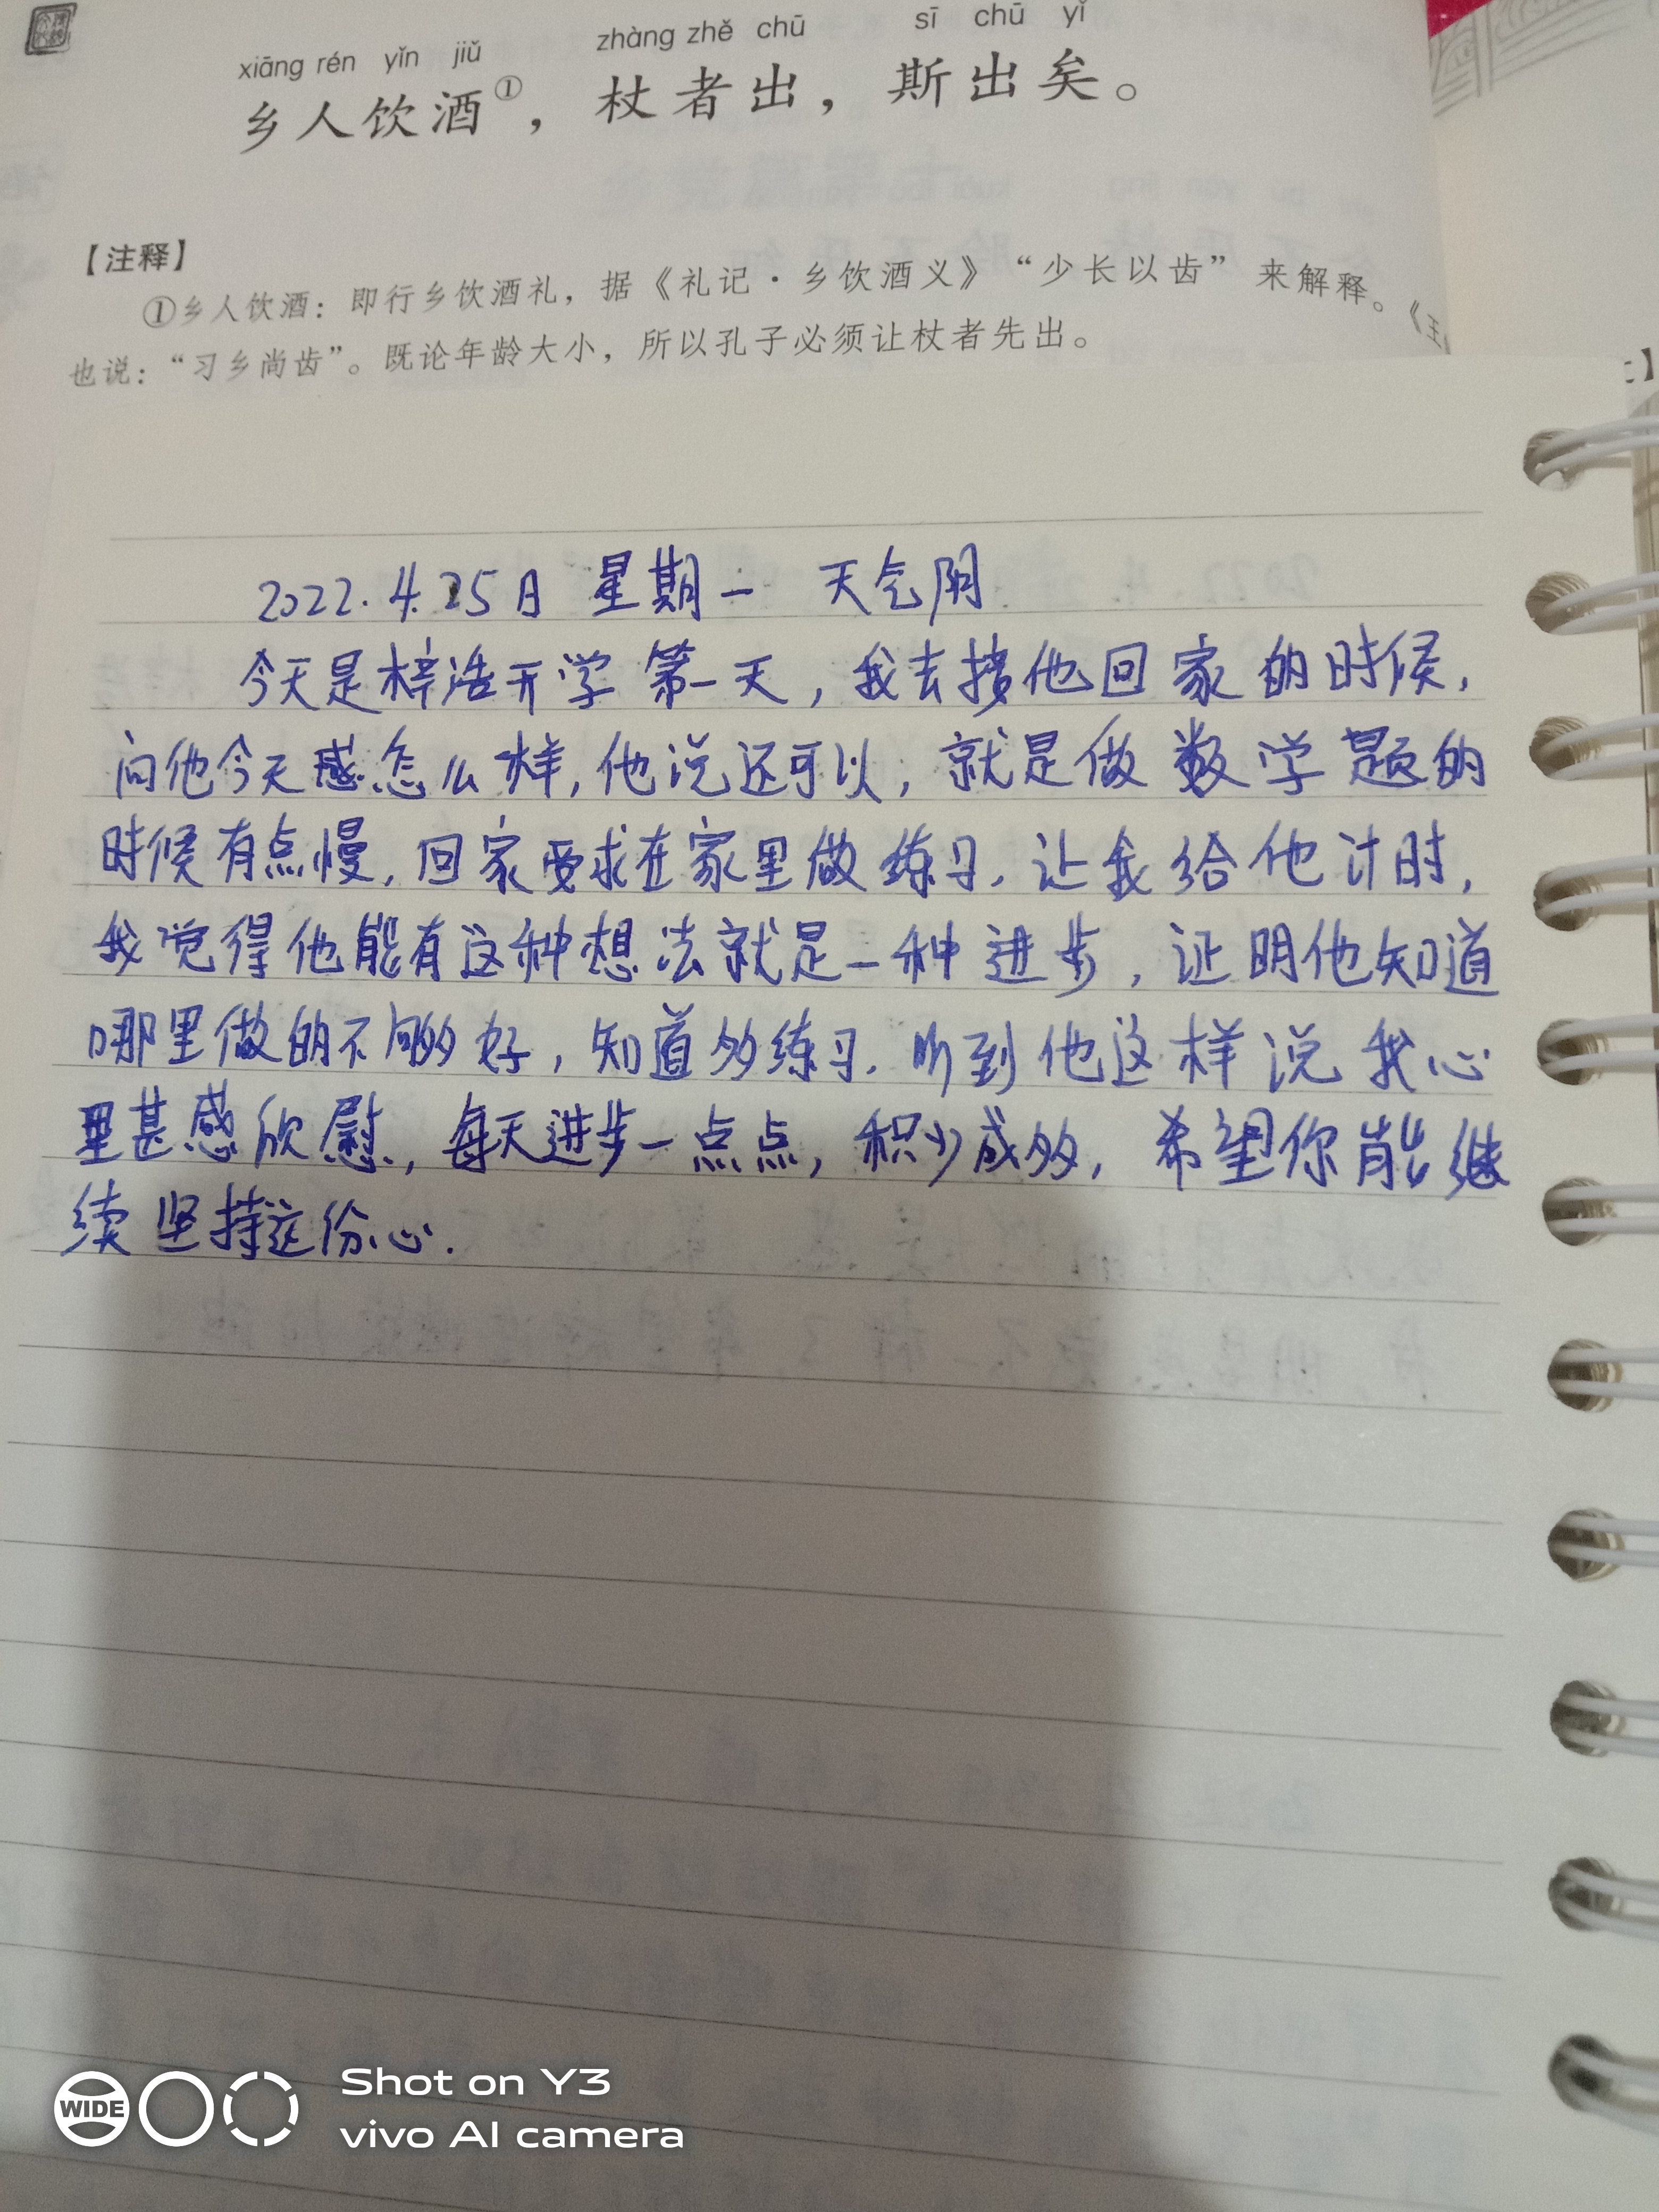 xiāng rén yǐn jiǔ zhàng zhě chū sī chū yǐ
乡人饮酒①，杖者出，斯出矣。
【注释】
①乡人饮酒：即行乡饮酒礼，据《礼记·乡饮酒义》“少长以齿”来解释。《
也说：“习乡尚齿”。既论年龄大小，所以孔子必须让杖者先出。
2022.4.25日 星期一 天气阴
今天是梓浩开学第一天，我去接他回家的时候，
问他今天感怎么样，他说还可以，就是做数学题的
时候有点慢，回家要求在家里做练习，让我给他计时，
我觉得他能有这种想法就是一种进步，证明他知道
哪里做的不够好，知道多练习，听到他这样说我心
里甚感欣慰，每天进步一点点，积少成多，希望你能继
续坚持这份心.
WIDE
Shot on Y3
vivo AI camera